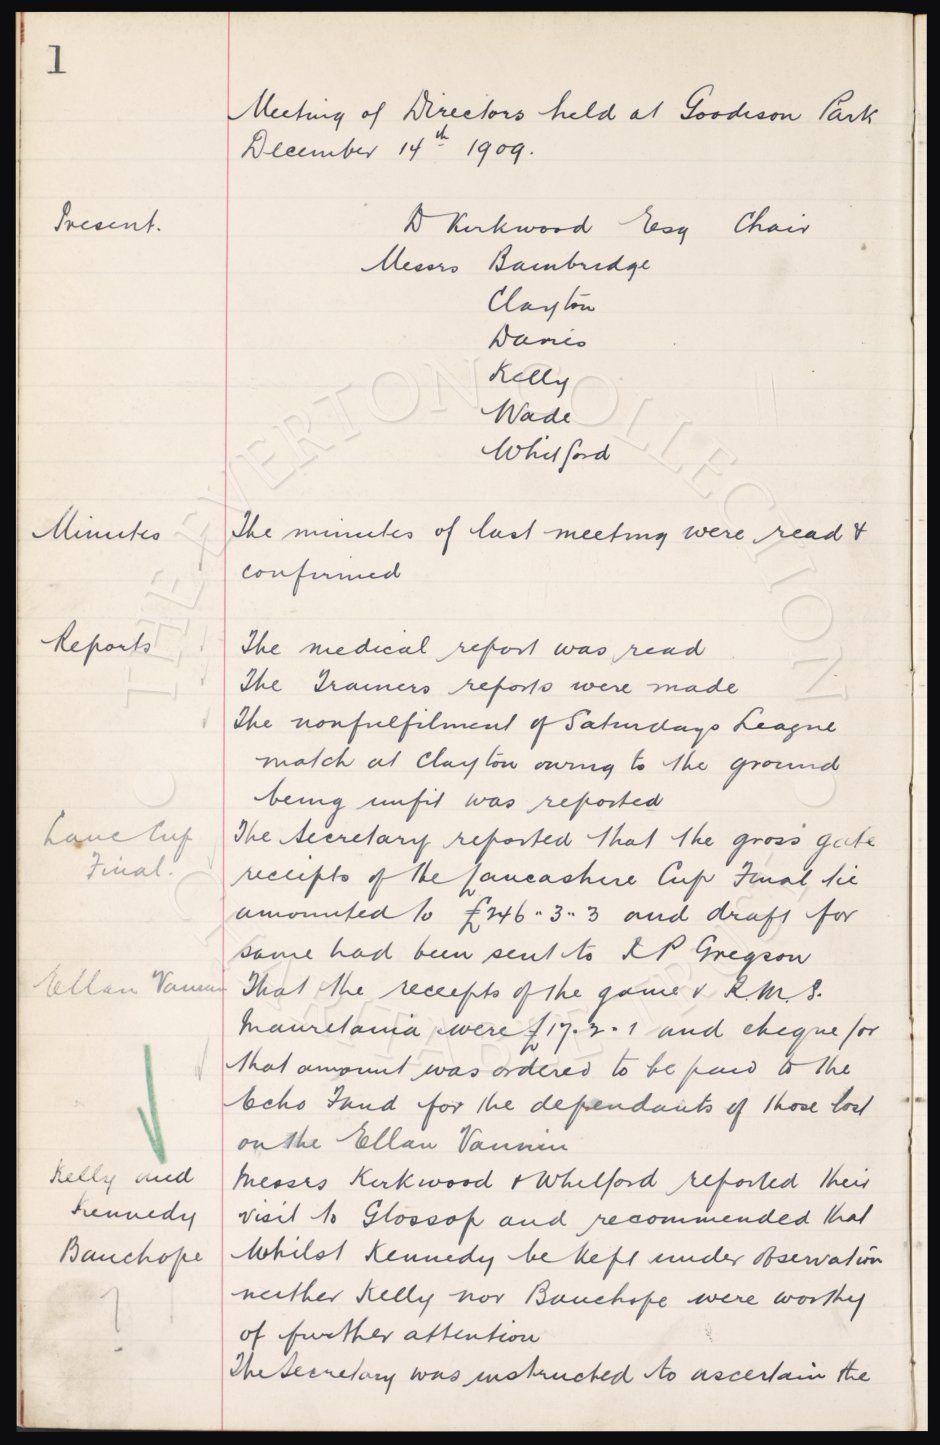 1
Meeting of Directors held at Goodison Park
December 14th 1909.
Present.
D Kirkwood Esq Chair
Messrs Bainbridge
Clayton
Davies
Kelly
Wade
Whitford
Minutes
The minutes of last meeting were read &
confirmed
Reports
The medical report was read
The Trainers reports were made
The nonfulfilment of Saturdays League
match at Clayton owing to the ground
being unfit was reported
Lanc Cup
Final.
The Secretary reported that the gross gate
receipts of the Lancashire Cup Final tie
amounted to £246-3-3 and draft for
same had been sent to R P Gregson
Ellan Vannin
That the receipts of the game v R.M.S.
Mauretania were £17-2-1 and cheque for
that amount was ordered to be paid to the
Echo Fund for the dependants of those lost
on the Ellan Vannin
Kelly and
Kennedy
Bauchope
?
Messrs Kirkwood & Whitford reported their
visit to Glossop and recommended that
Whilst Kennedy be kept under observation
neither Kelly nor Bauchope were worthy
of further attention
The Secretary was instructed to ascertain the
THE EVERTON COLLECTION